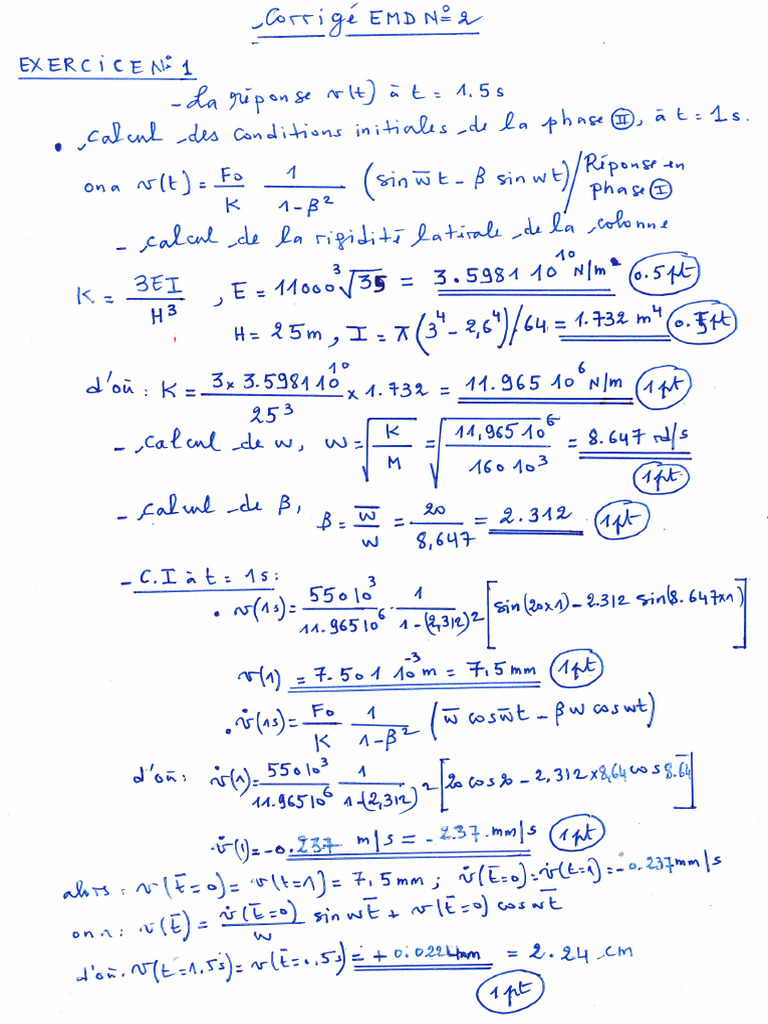 Corrigé EMD N° 2
EXERCICE N° 1
- La réponse v(t) à t = 1.5s
• Calcul des conditions initiales de la phase (II), à t = 1s.
on a v(t) = F0/K 1/(1-β²) (sin w̅t - β sin wt) / Réponse en phase (I)
- Calcul de la rigidité latérale de la colonne
K = 3EI/H³ , E = 11000 ³√35 = 3.5981 10¹⁰ N/m² (0.5pt)
H = 25m, I = π(3⁴ - 2,6⁴)/64 = 1.732 m⁴ (0.5pt)
d'où : K = 3 x 3.5981 10¹⁰/25³ x 1.732 = 11.965 10⁶ N/m (1pt)
- Calcul de w, w = √(K/M) = √(11,965 10⁶/160 10³) = 8.647 rd/s
(1pt)
- Calcul de β, β = w̅/w = 20/8,647 = 2.312 (1pt)
- C.I à t = 1s :
• v(1s) = 550 10³/11.965 10⁶ . 1/(1-(2,312)²) [sin(20x1) - 2.312 sin(8.647x1)]
v(1) = 7.501 10⁻³ m = 7,5 mm (1pt)
• v̇(1s) = F0/K 1/(1-β²) (w̅ cos w̅t - βw cos wt)
d'où : v̇(1) = 550 10³/11.965 10⁶ 1/(1-(2,312)²) [20 cos 20 - 2,312 x 8,64 cos 8.64]
v̇(1) = -0.237 m/s = -237 mm/s (1pt)
alors : v(t̅=0) = v(t=1) = 7,5 mm ; v̇(t̅=0) = v̇(t=1) = -0.237 mm/s
on a : v(t̅) = v̇(t̅=0)/w sin wt̅ + v(t̅=0) cos wt̅
d'où. v(t=1.5s) = v(t̅=0.5s) = +0.0224 mm = 2.24 cm
(1pt)